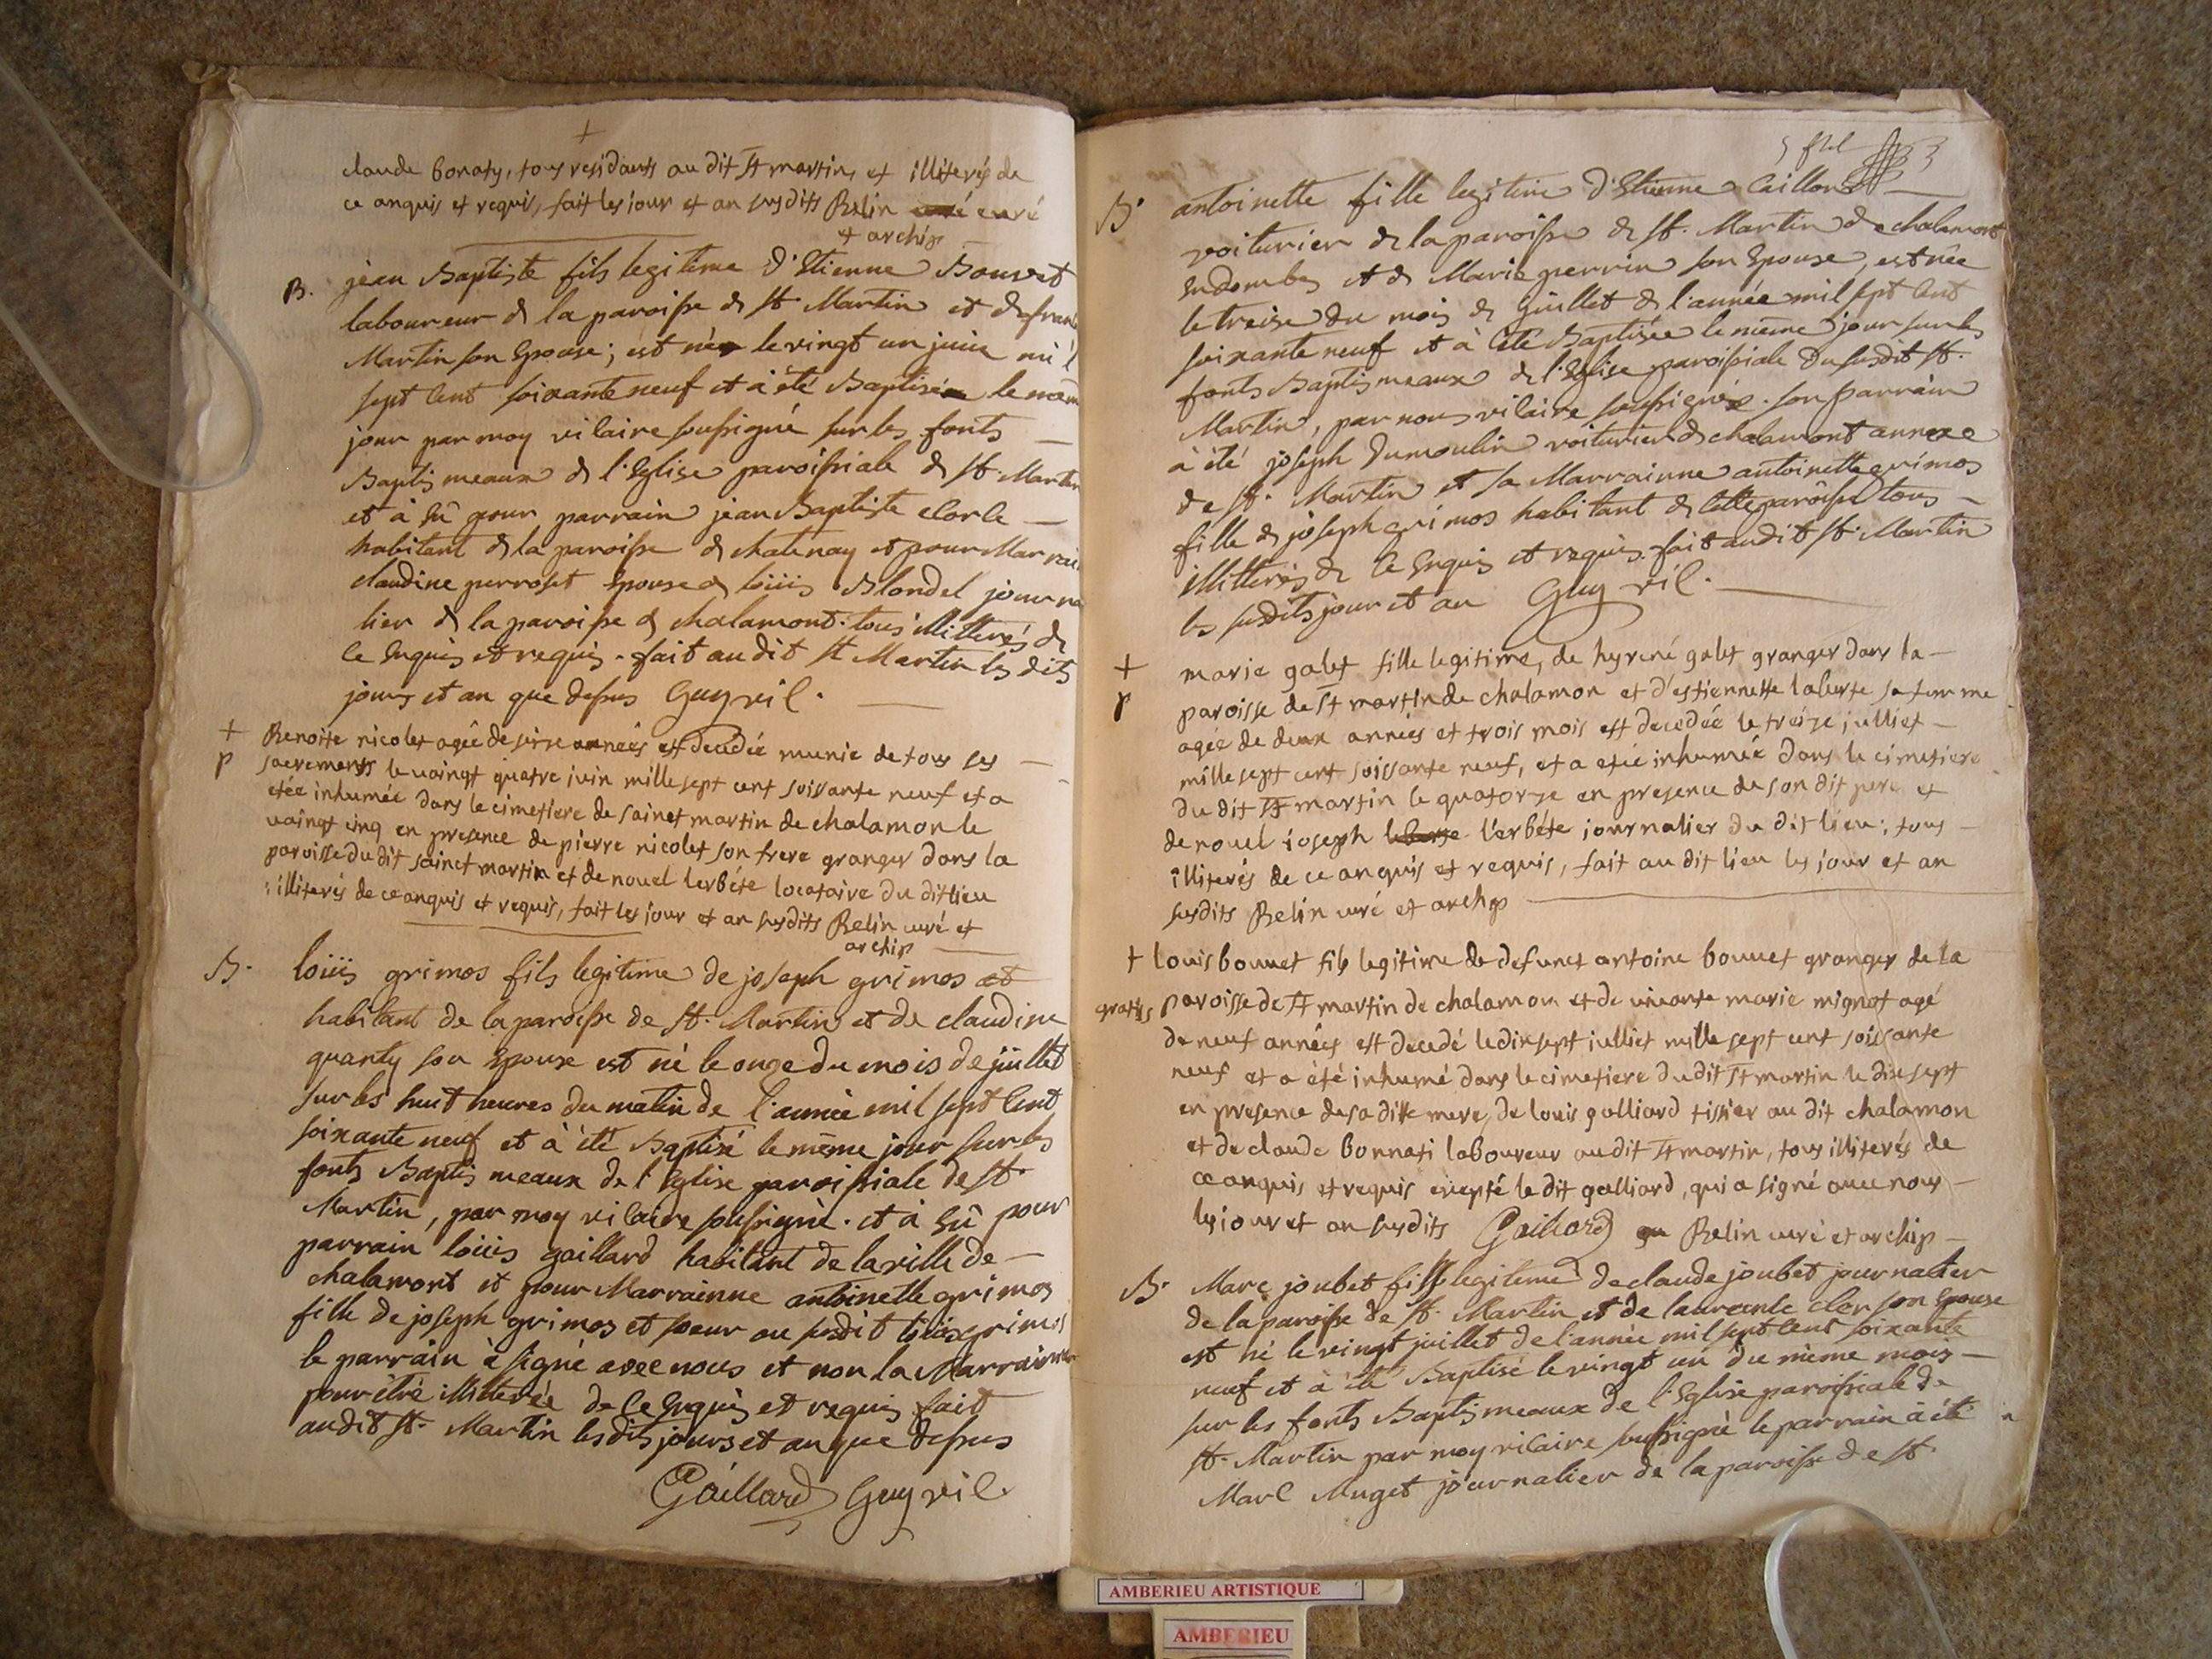 claude bonaty, tous residants au dit St martin, et illiterés de
ce anquis et requis, fait les jour et an susdits Belin curé
et archip
B. jean Baptiste fils legitime d'Etienne Bouvet
laboureur de la paroisse de St Martin et de
Martin son Epouse; est né le vingt un juin mil
sept Cent soixante neuf et à été Baptisé le meme
jour par moy vicaire soussigné sur les fonts
Baptismeaux de l'Eglise paroissiale de St. Martin
et à Eû pour parrain jean Baptiste
habitant de la paroisse de chatenay et pour Marrai
claudine perroset Epouse de loüis Blondel journa
lier de la paroisse de chalamont. tous illitterés de
Ce Enquis et requis. fait audit St Martin les dits
jours et an que dessus Guy vic.
+ Benoite nicolet agée de seize années est decedée munie de tous ses
p sacrements le vaingt quatre juin mille sept cent soissante neuf et a
etée inhumée dans le cimetiere de sainct martin de chalamon le
vaingt cinq en presence de pierre nicolet son frere granger dans la
paroisse du dit sainct martin et de nouel lerbéte locataire du dit lieu
illiterés de ce anquis et requis, fait les jour et an susdits Belin curé et
archip
B. loüis grimos fils legitime de joseph grimos et
habitant de la paroisse de St. Martin et de claudine
quanty son Epouse est né le onze du mois de juillet
sur les huit heures du matin de l'année mil sept Cent
soixante neuf et à été Baptisé le même jour sur les
fonts Baptismeaux de l'Eglise paroissiale de St.
Martin, par moy vicaire soussigné. et à Eû pour
parrain loüis gaillard habitant de la ville de
chalamont et pour Marrainne antoinette grimos
fille de joseph grimos et soeur au susdit loüis grimos
le parrain à signé avec nous et non la Marrainne
pour être illitterée de Ce Enquis et requis fait
audit St. Martin les dits jours et an que dessus
Gaillard Guy vic.
B. antoinette fille legitime d'Etienne Caillon
voiturier de la paroisse de St. Martin de chalamont
En dombes et de Marie perrin son Epouse, est née
le treise du mois de Juillet de l'année mil sept Cent
soixante neuf et à été Baptisée le même jour sur les
fonts Baptismeaux de l'Eglise paroissiale du susdit St.
Martin, par nous vicaire soussigné. son parrain
à été joseph Dumoulin voiturier de chalamont annexe
de St. Martin et sa Marrainne antoinette grimos
fille de joseph grimos habitant de Cette paroisse tous
illitterés de Ce Enquis et requis. fait audit St. Martin
les susdits jour et an Guy vic.
+ marie galet fille legitime, de hyrené galet granger dans la
p paroisse de St martin de chalamon et d'estiennette laburte sa femme
agée de deux années et trois mois est decedée le treize julliet
mille sept cent soissante neuf, et a etée inhumée dans le cimetiere
du dit St martin le quatorze en presence de son dit pere et
de nouel joseph l'erbéte journalier du dit lieu; tous
illiterés de ce anquis et requis, fait au dit lieu les jour et an
susdits Belin curé et archip
+ louis bouvet fils legitime de defunct antoine bouvet granger de la
gratis paroisse de St martin de chalamon et de vivante marie mignot agé
de neuf années est decedé le dixsept julliet mille sept cent soissante
neuf et a été inhumé dans le cimetiere du dit St martin le dix sept
en presence de sa dite mere, de louis galliard tissier au dit chalamon
et de claude bonnati laboureur au dit St martin, tous illiterés de
ce anquis et requis excepté le dit galliard, qui a signé avec nous
les jour et an susdits Gaillard Belin curé et archip
B. Marc joubet fils legitime de claude joubet journalier
de la paroisse de St. Martin et de laurente cler son Epouse
est né le vingt juillet de l'année mil sept Cent soixante
neuf et à été Baptisé le vingt un du même mois
sur les fonts Baptismeaux de l'Eglise paroissiale de
St. Martin par moy vicaire soussigné le parrain à été
Marc Muget journalier de la paroisse de St
AMBERIEU ARTISTIQUE
AMBERIEU